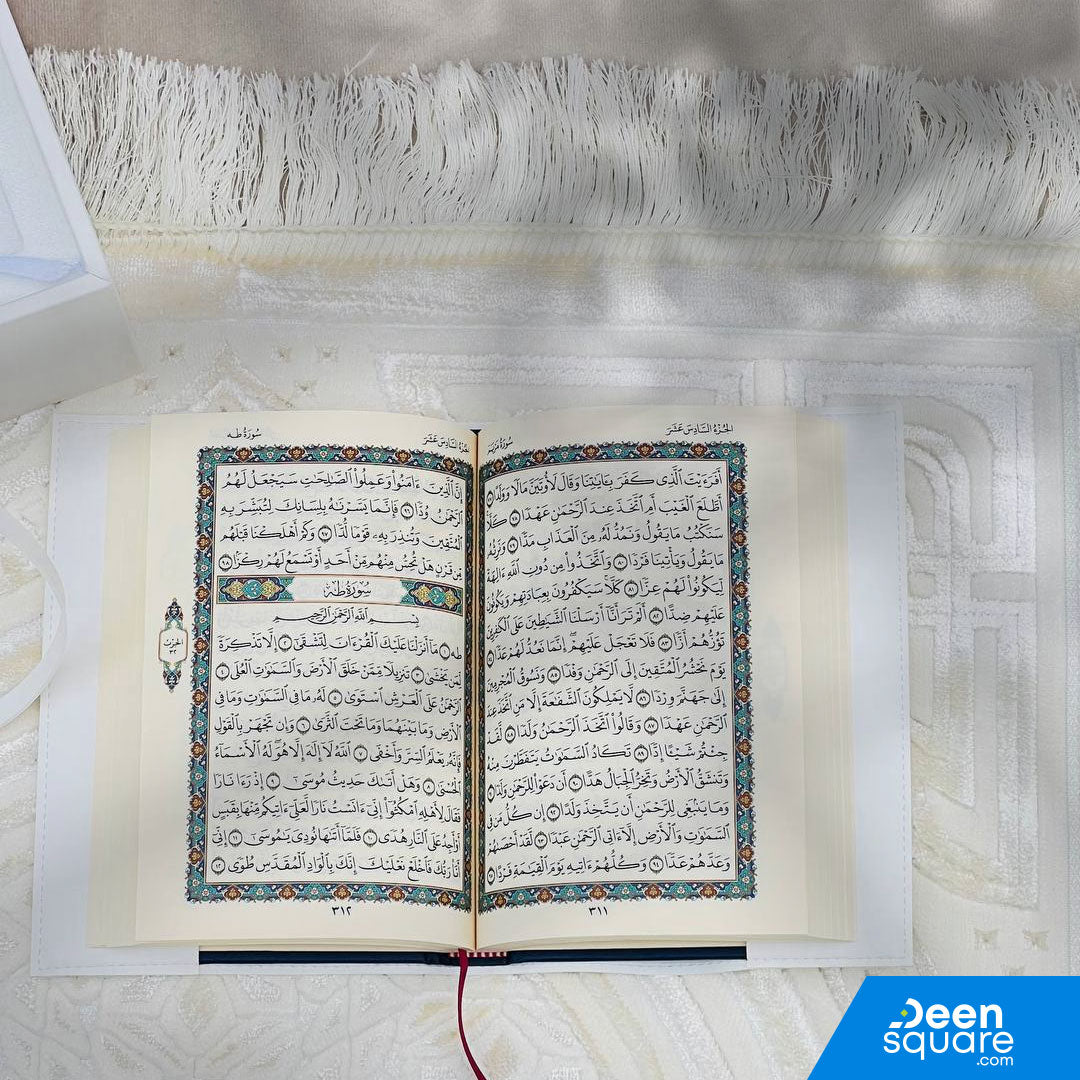 الجزء السادس عشر
سورة مريم
أَفَرَءَيْتَ ٱلَّذِى كَفَرَ بِـَٔايَٰتِنَا وَقَالَ لَأُوتَيَنَّ مَالًا وَوَلَدًا ٧٧
أَطَّلَعَ ٱلْغَيْبَ أَمِ ٱتَّخَذَ عِندَ ٱلرَّحْمَٰنِ عَهْدًا ٧٨ كَلَّا
سَنَكْتُبُ مَا يَقُولُ وَنَمُدُّ لَهُۥ مِنَ ٱلْعَذَابِ مَدًّا ٧٩ وَنَرِثُهُۥ
مَا يَقُولُ وَيَأْتِينَا فَرْدًا ٨٠ وَٱتَّخَذُوا۟ مِن دُونِ ٱللَّهِ ءَالِهَةً
لِّيَكُونُوا۟ لَهُمْ عِزًّا ٨١ كَلَّا سَيَكْفُرُونَ بِعِبَادَتِهِمْ وَيَكُونُونَ
عَلَيْهِمْ ضِدًّا ٨٢ أَلَمْ تَرَ أَنَّآ أَرْسَلْنَا ٱلشَّيَٰطِينَ عَلَى ٱلْكَٰفِرِينَ
تَؤُزُّهُمْ أَزًّا ٨٣ فَلَا تَعْجَلْ عَلَيْهِمْ إِنَّمَا نَعُدُّ لَهُمْ عَدًّا ٨٤
يَوْمَ نَحْشُرُ ٱلْمُتَّقِينَ إِلَى ٱلرَّحْمَٰنِ وَفْدًا ٨٥ وَنَسُوقُ ٱلْمُجْرِمِينَ
إِلَىٰ جَهَنَّمَ وِرْدًا ٨٦ لَّا يَمْلِكُونَ ٱلشَّفَٰعَةَ إِلَّا مَنِ ٱتَّخَذَ عِندَ
ٱلرَّحْمَٰنِ عَهْدًا ٨٧ وَقَالُوا۟ ٱتَّخَذَ ٱلرَّحْمَٰنُ وَلَدًا ٨٨ لَّقَدْ
جِئْتُمْ شَيْـًٔا إِدًّا ٨٩ تَكَادُ ٱلسَّمَٰوَٰتُ يَتَفَطَّرْنَ مِنْهُ
وَتَنشَقُّ ٱلْأَرْضُ وَتَخِرُّ ٱلْجِبَالُ هَدًّا ٩٠ أَن دَعَوْا۟ لِلرَّحْمَٰنِ وَلَدًا ٩١
وَمَا يَنۢبَغِى لِلرَّحْمَٰنِ أَن يَتَّخِذَ وَلَدًا ٩٢ إِن كُلُّ مَن فِى
ٱلسَّمَٰوَٰتِ وَٱلْأَرْضِ إِلَّآ ءَاتِى ٱلرَّحْمَٰنِ عَبْدًا ٩٣ لَّقَدْ أَحْصَىٰهُمْ
وَعَدَّهُمْ عَدًّا ٩٤ وَكُلُّهُمْ ءَاتِيهِ يَوْمَ ٱلْقِيَٰمَةِ فَرْدًا ٩٥
٣١١
الجزء السادس عشر
سورة طه
إِنَّ ٱلَّذِينَ ءَامَنُوا۟ وَعَمِلُوا۟ ٱلصَّٰلِحَٰتِ سَيَجْعَلُ لَهُمُ
ٱلرَّحْمَٰنُ وُدًّا ٩٦ فَإِنَّمَا يَسَّرْنَٰهُ بِلِسَانِكَ لِتُبَشِّرَ بِهِ
ٱلْمُتَّقِينَ وَتُنذِرَ بِهِۦ قَوْمًا لُّدًّا ٩٧ وَكَمْ أَهْلَكْنَا قَبْلَهُم
مِّن قَرْنٍ هَلْ تُحِسُّ مِنْهُم مِّنْ أَحَدٍ أَوْ تَسْمَعُ لَهُمْ رِكْزًۢا ٩٨
سورة طه
بِسْمِ ٱللَّهِ ٱلرَّحْمَٰنِ ٱلرَّحِيمِ
طه ١ مَآ أَنزَلْنَا عَلَيْكَ ٱلْقُرْءَانَ لِتَشْقَىٰٓ ٢ إِلَّا تَذْكِرَةً
لِّمَن يَخْشَىٰ ٣ تَنزِيلًا مِّمَّنْ خَلَقَ ٱلْأَرْضَ وَٱلسَّمَٰوَٰتِ ٱلْعُلَى ٤
ٱلرَّحْمَٰنُ عَلَى ٱلْعَرْشِ ٱسْتَوَىٰ ٥ لَهُۥ مَا فِى ٱلسَّمَٰوَٰتِ وَمَا فِى
ٱلْأَرْضِ وَمَا بَيْنَهُمَا وَمَا تَحْتَ ٱلثَّرَىٰ ٦ وَإِن تَجْهَرْ بِٱلْقَوْلِ
فَإِنَّهُۥ يَعْلَمُ ٱلسِّرَّ وَأَخْفَى ٧ ٱللَّهُ لَآ إِلَٰهَ إِلَّا هُوَ لَهُ ٱلْأَسْمَآءُ
ٱلْحُسْنَىٰ ٨ وَهَلْ أَتَىٰكَ حَدِيثُ مُوسَىٰٓ ٩ إِذْ رَءَا نَارًا
فَقَالَ لِأَهْلِهِ ٱمْكُثُوٓا۟ إِنِّىٓ ءَانَسْتُ نَارًا لَّعَلِّىٓ ءَاتِيكُم مِّنْهَا بِقَبَسٍ
أَوْ أَجِدُ عَلَى ٱلنَّارِ هُدًى ١٠ فَلَمَّآ أَتَىٰهَا نُودِىَ يَٰمُوسَىٰٓ ١١ إِنِّىٓ
أَنَا۠ رَبُّكَ فَٱخْلَعْ نَعْلَيْكَ إِنَّكَ بِٱلْوَادِ ٱلْمُقَدَّسِ طُوًى ١٢
٣١٢
الحزب
Deen
square
.com